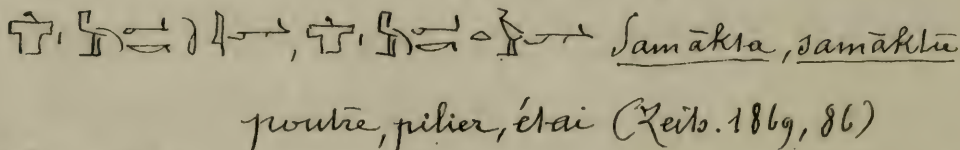 Samākta, samāktū
poutre, pilier, étai (Zeits. 1869, 86)